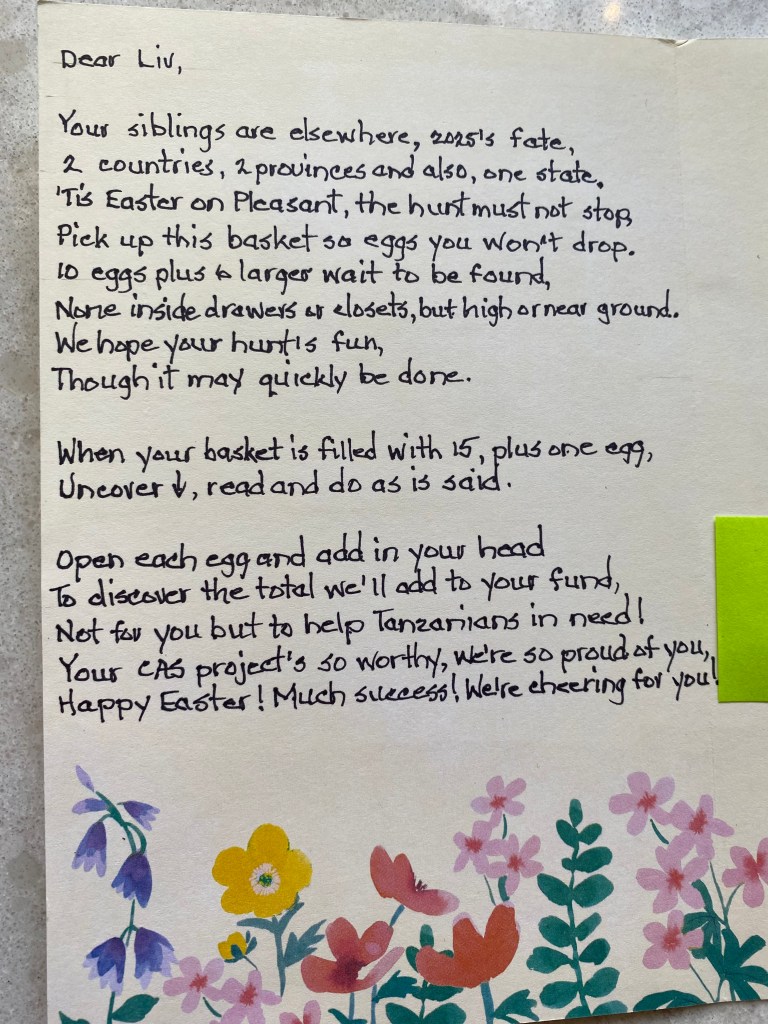 Dear Liv,
Your siblings are elsewhere, 2025's fate,
2 countries, 2 provinces and also, one state.
'Tis Easter on Pleasant, the hunt must not stop,
Pick up this basket so eggs you won't drop.
10 eggs plus 6 larger wait to be found,
None inside drawers or closets, but high or near ground.
We hope your hunt is fun,
Though it may quickly be done.
When your basket is filled with 15, plus one egg,
Uncover ↓, read and do as is said.
Open each egg and add in your head
To discover the total we'll add to your fund,
Not for you but to help Tanzanians in need!
Your CAS project's so worthy, we're so proud of you,
Happy Easter! Much success! We're cheering for you!